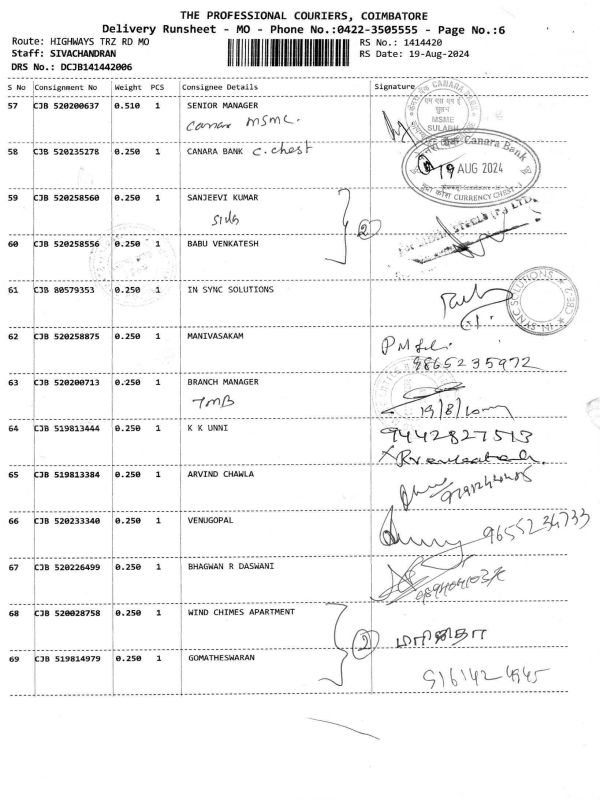 THE PROFESSIONAL COURIERS, COIMBATORE
Delivery Runsheet - MO - Phone No.:0422-3505555 - Page No.:6
Route: HIGHWAYS TRZ RD MO RS No.: 1414420
Staff: SIVACHANDRAN RS Date: 19-Aug-2024
DRS No.: DCJB141442006
S No Consignment No Weight PCS Consignee Details Signature
57 CJB 520200637 0.510 1 SENIOR MANAGER
MSME
58 CJB 520235278 0.250 1 CANARA BANK C. chest
59 CJB 520258560 0.250 1 SANJEEVI KUMAR
60 CJB 520258556 0.250 1 BABU VENKATESH
2
61 CJB 80579353 0.250 1 IN SYNC SOLUTIONS
62 CJB 520258875 0.250 1 MANIVASAKAM
9865235972
63 CJB 520200713 0.250 1 BRANCH MANAGER
TMB
19/8/
64 CJB 519813444 0.250 1 K K UNNI
9442827513
65 CJB 519813384 0.250 1 ARVIND CHAWLA
66 CJB 520233340 0.250 1 VENUGOPAL
9655234733
67 CJB 520226499 0.250 1 BHAGWAN R DASWANI
68 CJB 520028758 0.250 1 WIND CHIMES APARTMENT
2
69 CJB 519814979 0.250 1 GOMATHESWARAN
CANARA BANK
MSME
SULABH
Canara Bank
19 AUG 2024
CURRENCY CHEST
IN-SYNC SOLUTIONS